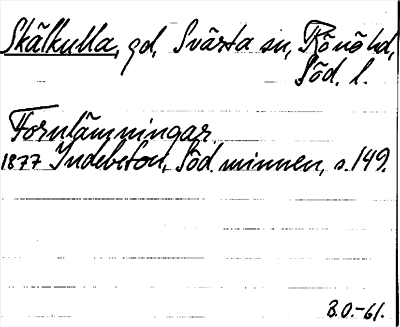 Skälkulla, gd, Svärta sn, Rönö hd,
Söd. l.
Fornlämningar.
1877 Indebetou, Söd. minnen, s. 149.
B.O.-61.